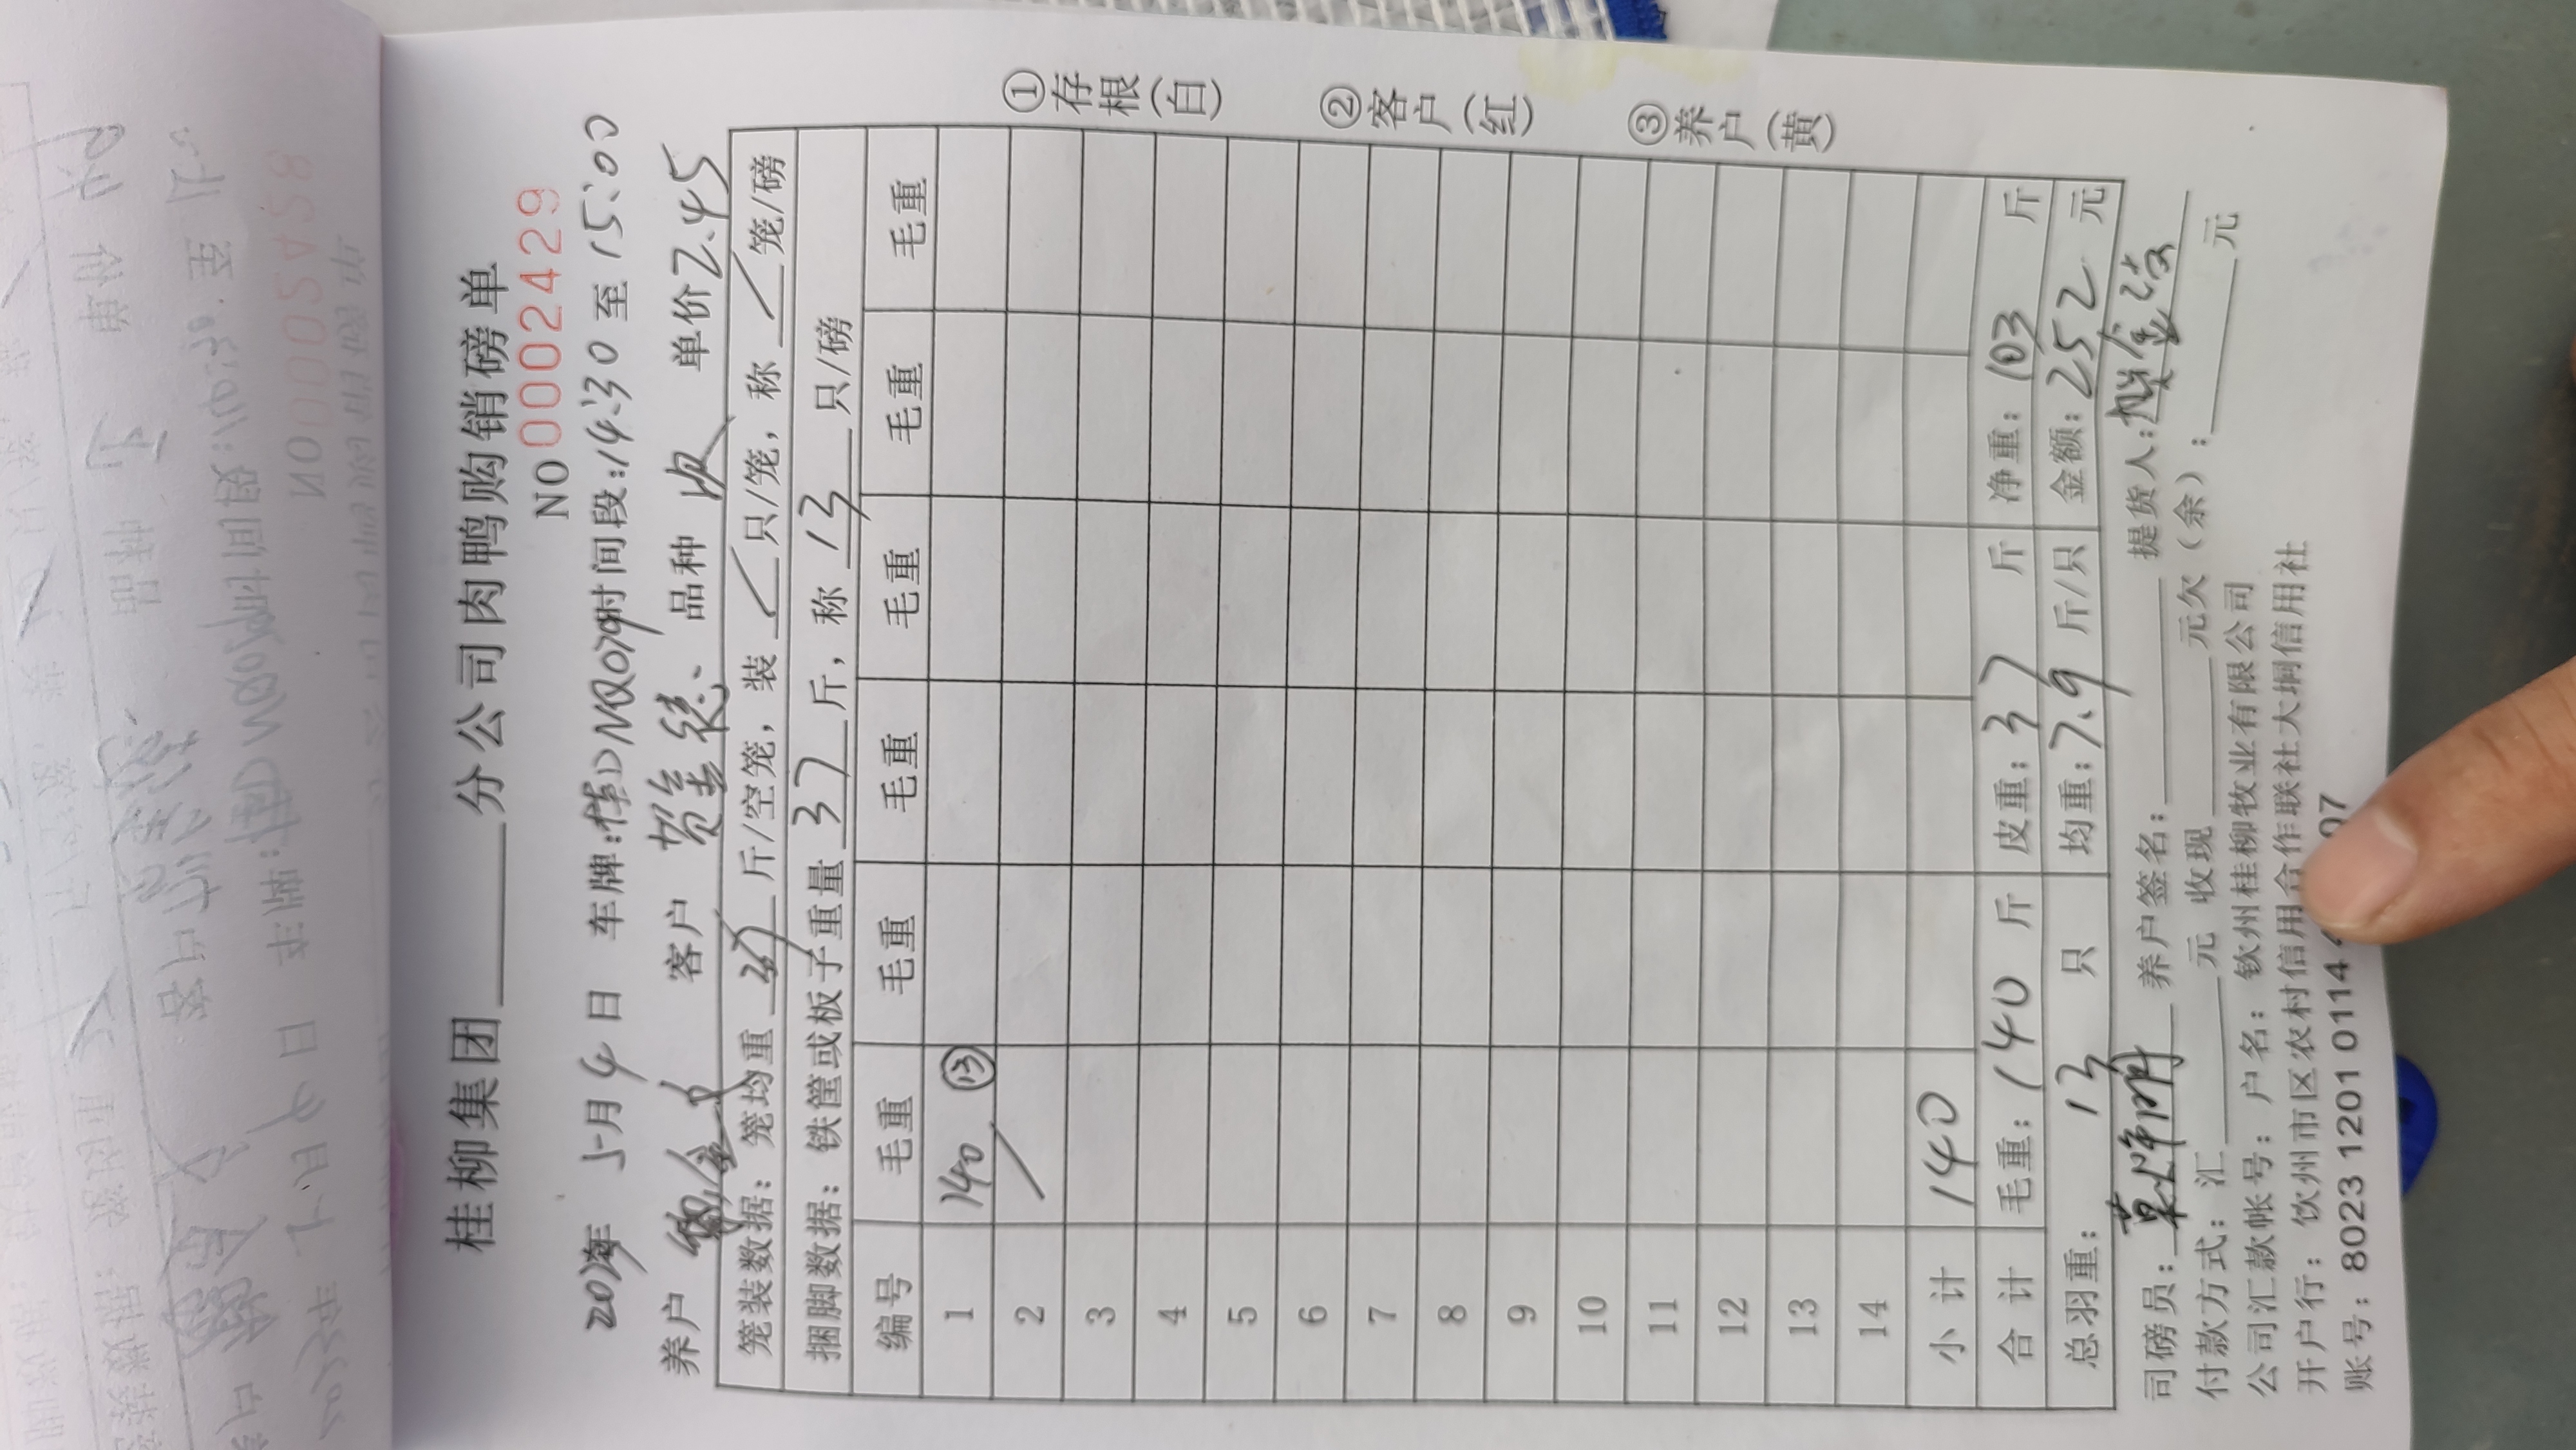 桂柳集团______分公司肉鸭购销磅单
NO 0002429
5月4日 车牌:桂DNQ079时间段:14:30至15:00
养户 客户 贺金德 品种 单价2.45
笼装数据：笼均重 37 斤/空笼，装 / 只/笼，称 / 笼/磅
捆脚数据：铁筐或板子重量 37 斤，称 13 只/磅
编号 毛重 毛重 毛重 毛重 毛重 毛重
1 140 ⑬
2
3
4
5
6
7
8
9
10
11
12
13
14
小计 140
合计 毛重：140 斤 皮重：37 斤 净重：103 斤
总羽重：13 只 均重：7.9 斤/只 金额：252 元
司磅员： 养户签名： 提货人：
付款方式：汇______元 收现______元欠（余）：______元
公司汇款帐号：户名：钦州桂柳牧业有限公司
开户行：钦州市区农村信用合作联社大垌信用社
账号：8023 1201 0114 97
①存根(白)
②客户(红)
③养户(黄)